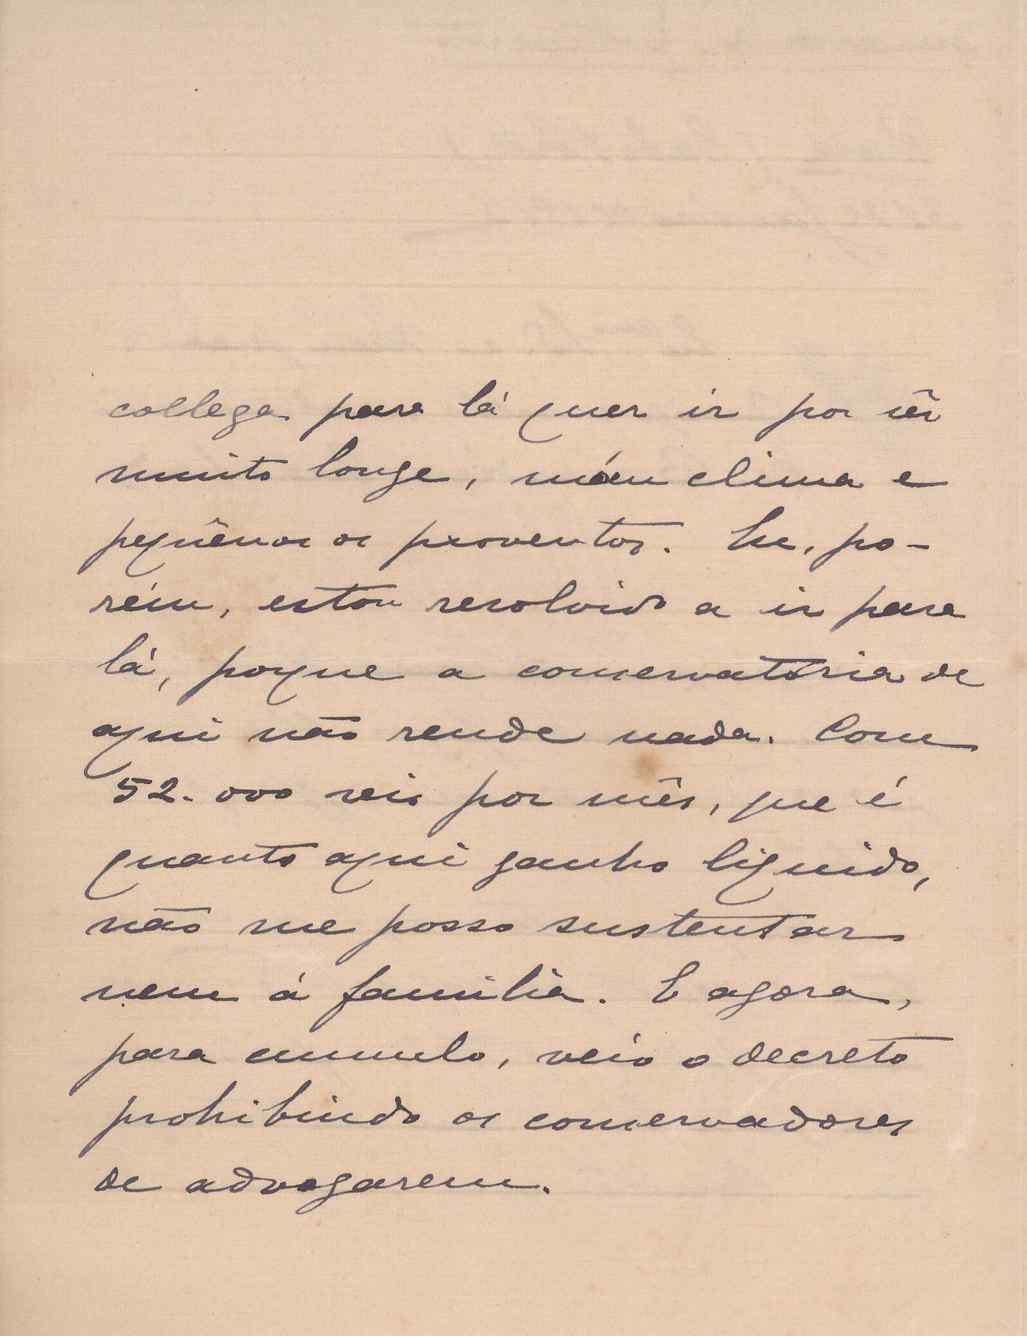 collega para lá quer ir por ser
muito longe, máu clima e
pequênos os proventos. Eu, po-
rém, estou resolvido a ir para
lá, porque a conservatória de
aqui não rende nada. Com
52.000 reis por mês, que é
quanto aqui ganho liquido,
não me posso sustentar
nem á familia. E agora,
para cumulo, veio o decreto
prohibindo os conservadores
de advogarem.